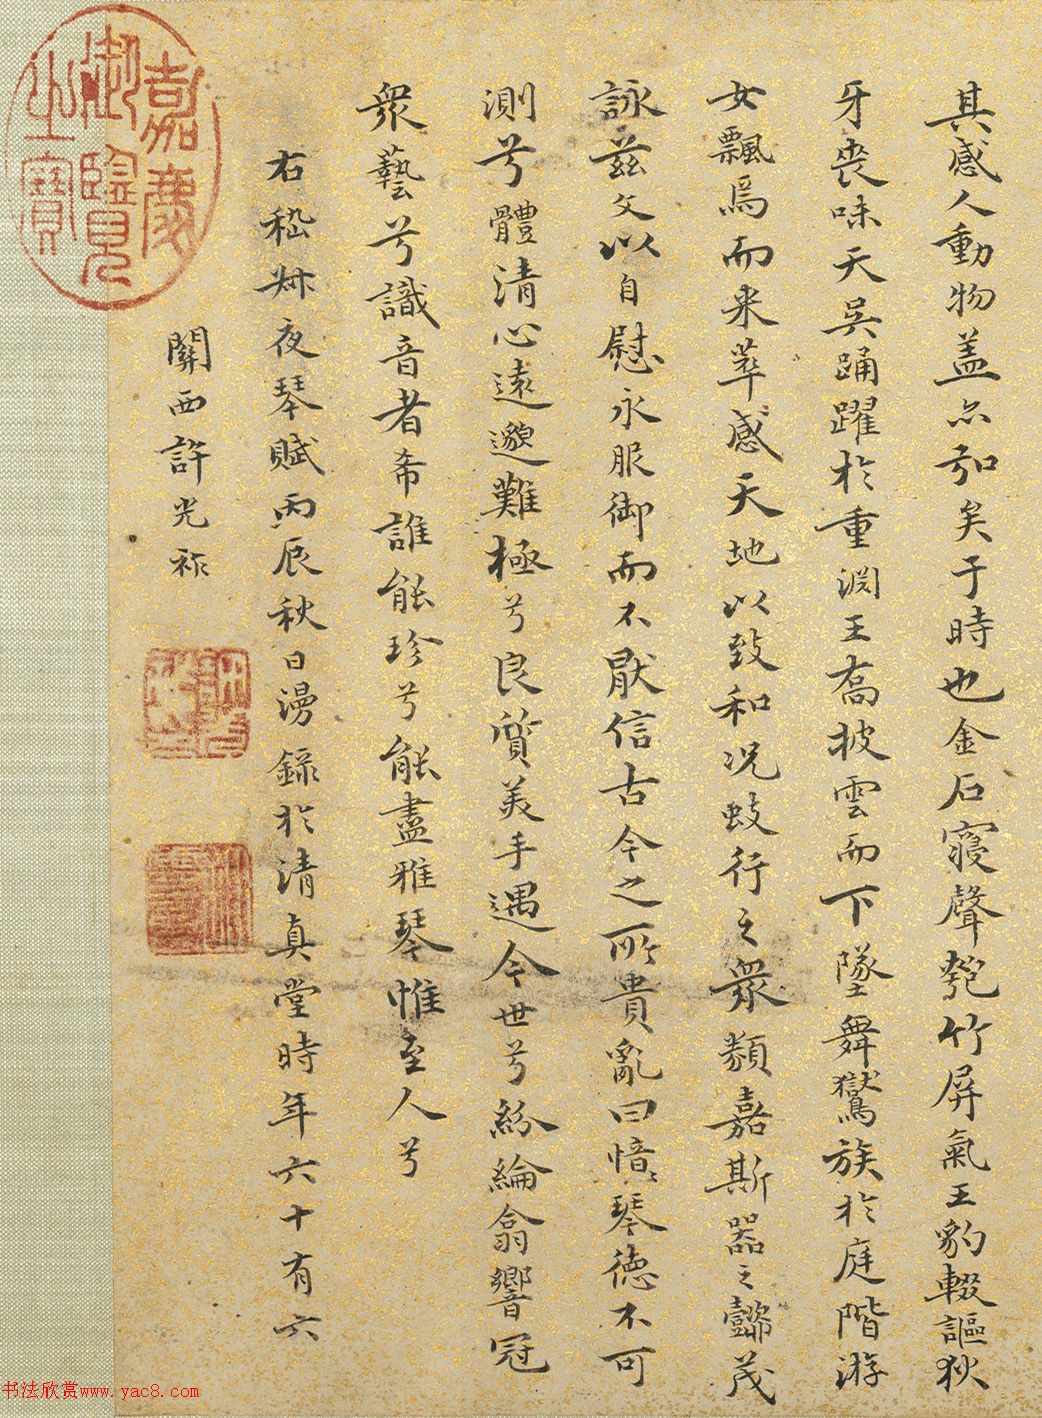 其感人動物盖亦弘矣于時也金石寢聲匏竹屏氣王豹輟謳狄
牙喪味天吳踊躍於重淵王喬披雲而下墜舞鸑鷟於庭階游
女飄焉而来萃感天地以致和况蚑行之衆類嘉斯器之懿茂
詠茲文以自慰永服御而不猒信古今之所貴亂曰愔〻琴德不可
測兮體清心遠邈難極兮良質美手遇今世兮紛綸翕響冠
衆藝兮識音者希誰能珍兮能盡雅琴惟至人兮
右嵇叔夜琴賦丙辰秋日漫録於清真堂時年六十有六
關西許光祚
嘉慶御覽之寶
书法欣赏www.yac8.com